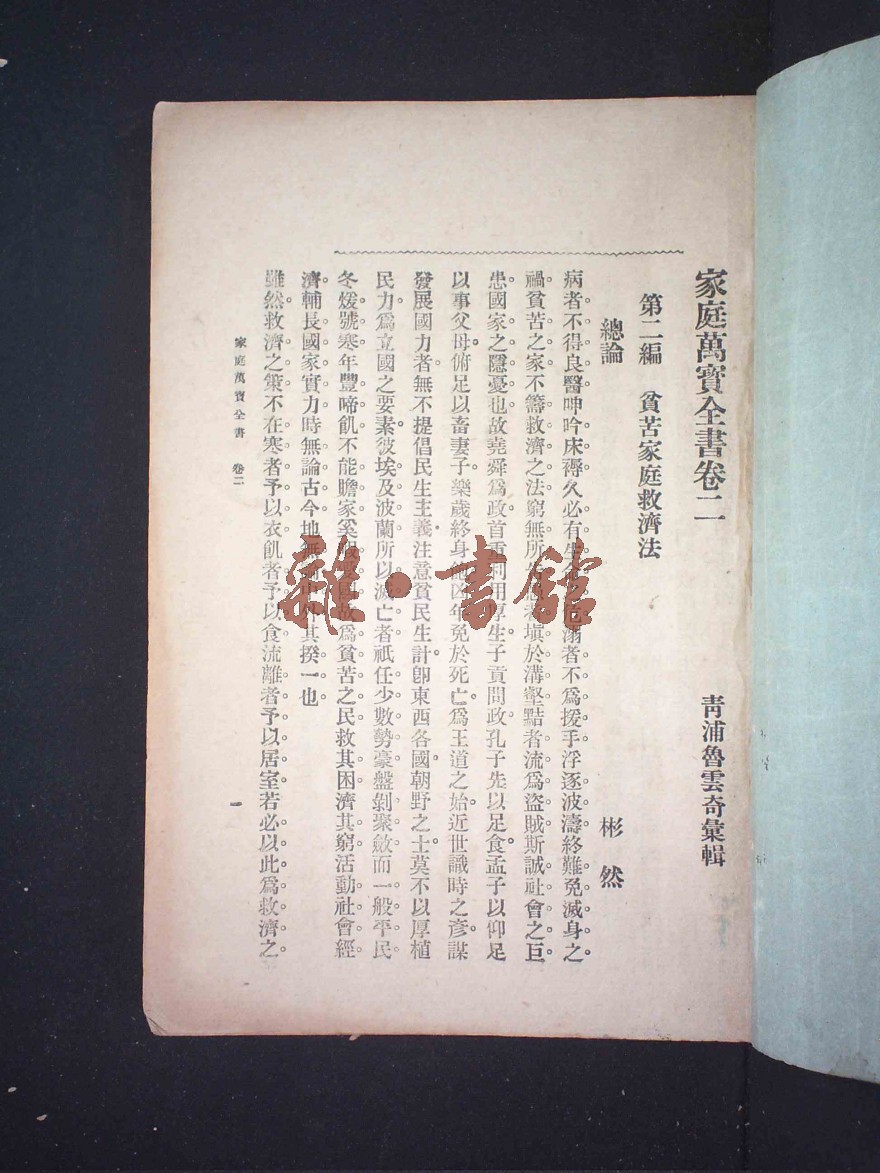 家庭萬寶全書卷二
青浦魯雲奇彙輯
第二編　貧苦家庭救濟法
總論
彬然
病者不得良醫呻吟床褥久必有生命之溺者不爲援手浮逐波濤終難免滅身之
禍貧苦之家不籌救濟之法窮無所填於溝壑黠者流爲盜賊斯誠社會之巨
患國家之隱憂也故堯舜爲政首重利用厚生子貢問政孔子先以足食孟子以仰足
以事父母俯足以畜妻子樂歲終身飽凶年免於死亡爲王道之始近世識時之彥謀
發展國力者無不提倡民生主義注意貧民生計卽東西各國朝野之士莫不以厚植
民力爲立國之要素彼埃及波蘭所以滅亡者祇任少數勢豪盤剝聚斂而一般平民
冬煖號寒年豐啼飢不能贍家奚暇故爲貧苦之民救其困濟其窮活動社會經
濟輔長國家實力時無論古今地無其揆一也
雖然救濟之策不在寒者予以衣飢者予以食流離者予以居室若必以此爲救濟之
家庭萬寶全書　卷二
一
雜·書館